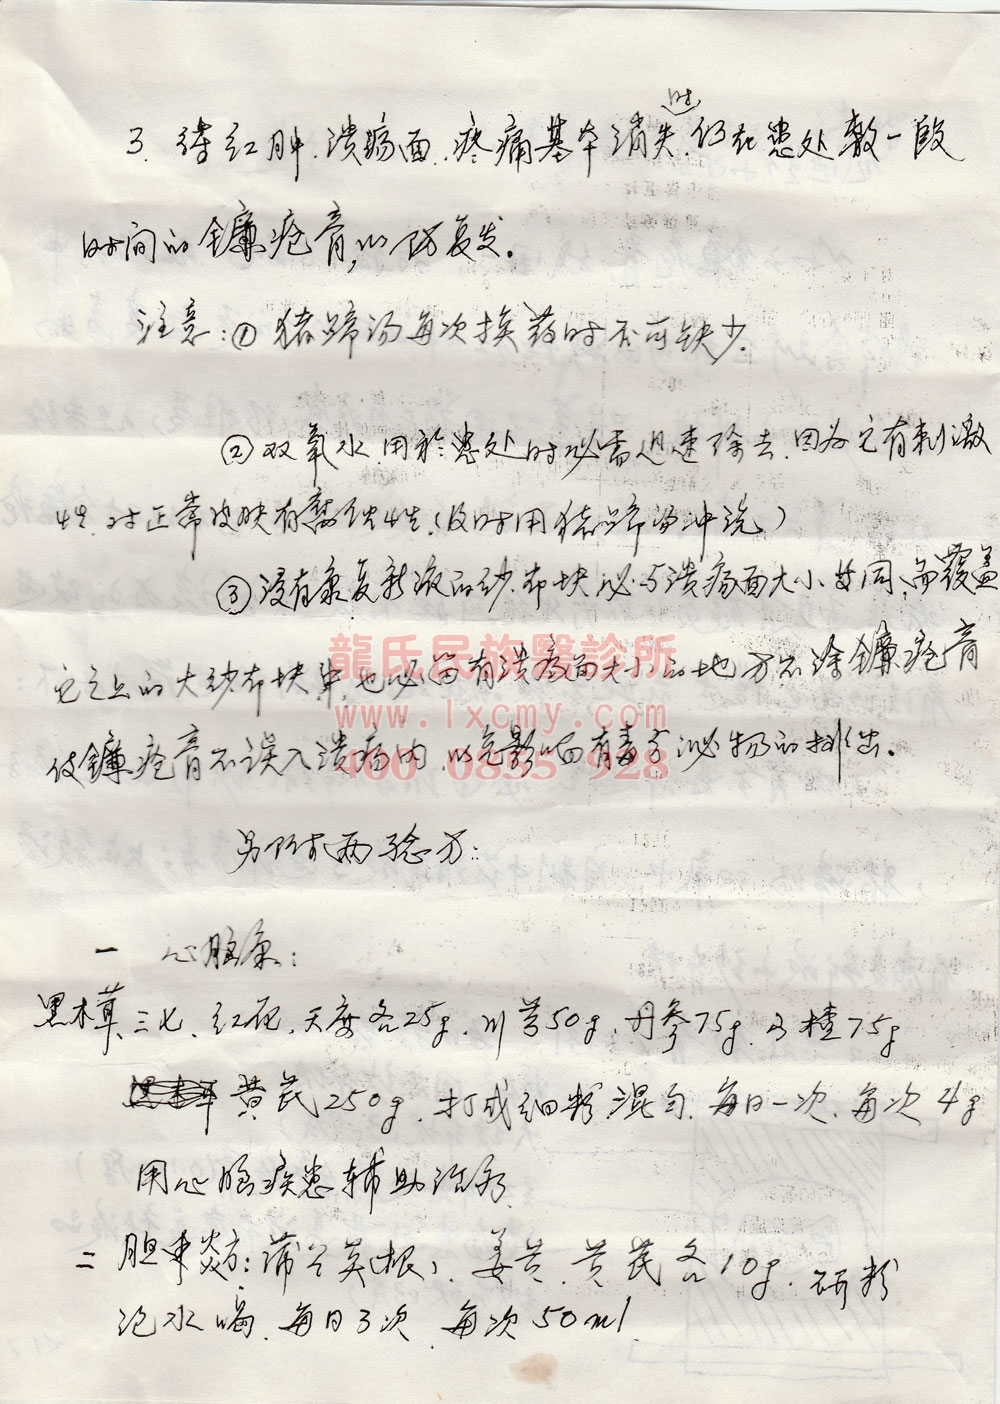 时
3. 待红肿、溃疡面、疼痛基本消失、仍在患处敷一段
时间的镰疮膏，以防复发。
注意：① 猪蹄汤每次换药时不可缺少.
② 双氧水、用於患处时必需迅速除去、因为它有刺激
性、对正常皮肤有腐蚀性、（及时用猪蹄汤冲洗）
③ 浸有康复新液的纱布块必与溃疡面大小女同、而覆盖
龍氏民族醫診所
它之上的大纱布块中、也必留有溃疡面大小的地方不涂镰疮膏
www.lxcmy.com
使镰疮膏不误入溃疡内、以免影响有毒分泌物的排出。
400 0855 928
另附两验方：
一 心脑康：
黑木草、三七、红花、天麻各25g、川芎50g、丹参75g、山楂75g
黄芪250g、打成细粉、混匀、每日一次、每次4g
用心脑疾患辅助治疗
二 胆囊炎方：蒲公英（根）、姜黄、黄芪各10g. 研粉
泡水喝、每日3次、每次50ml